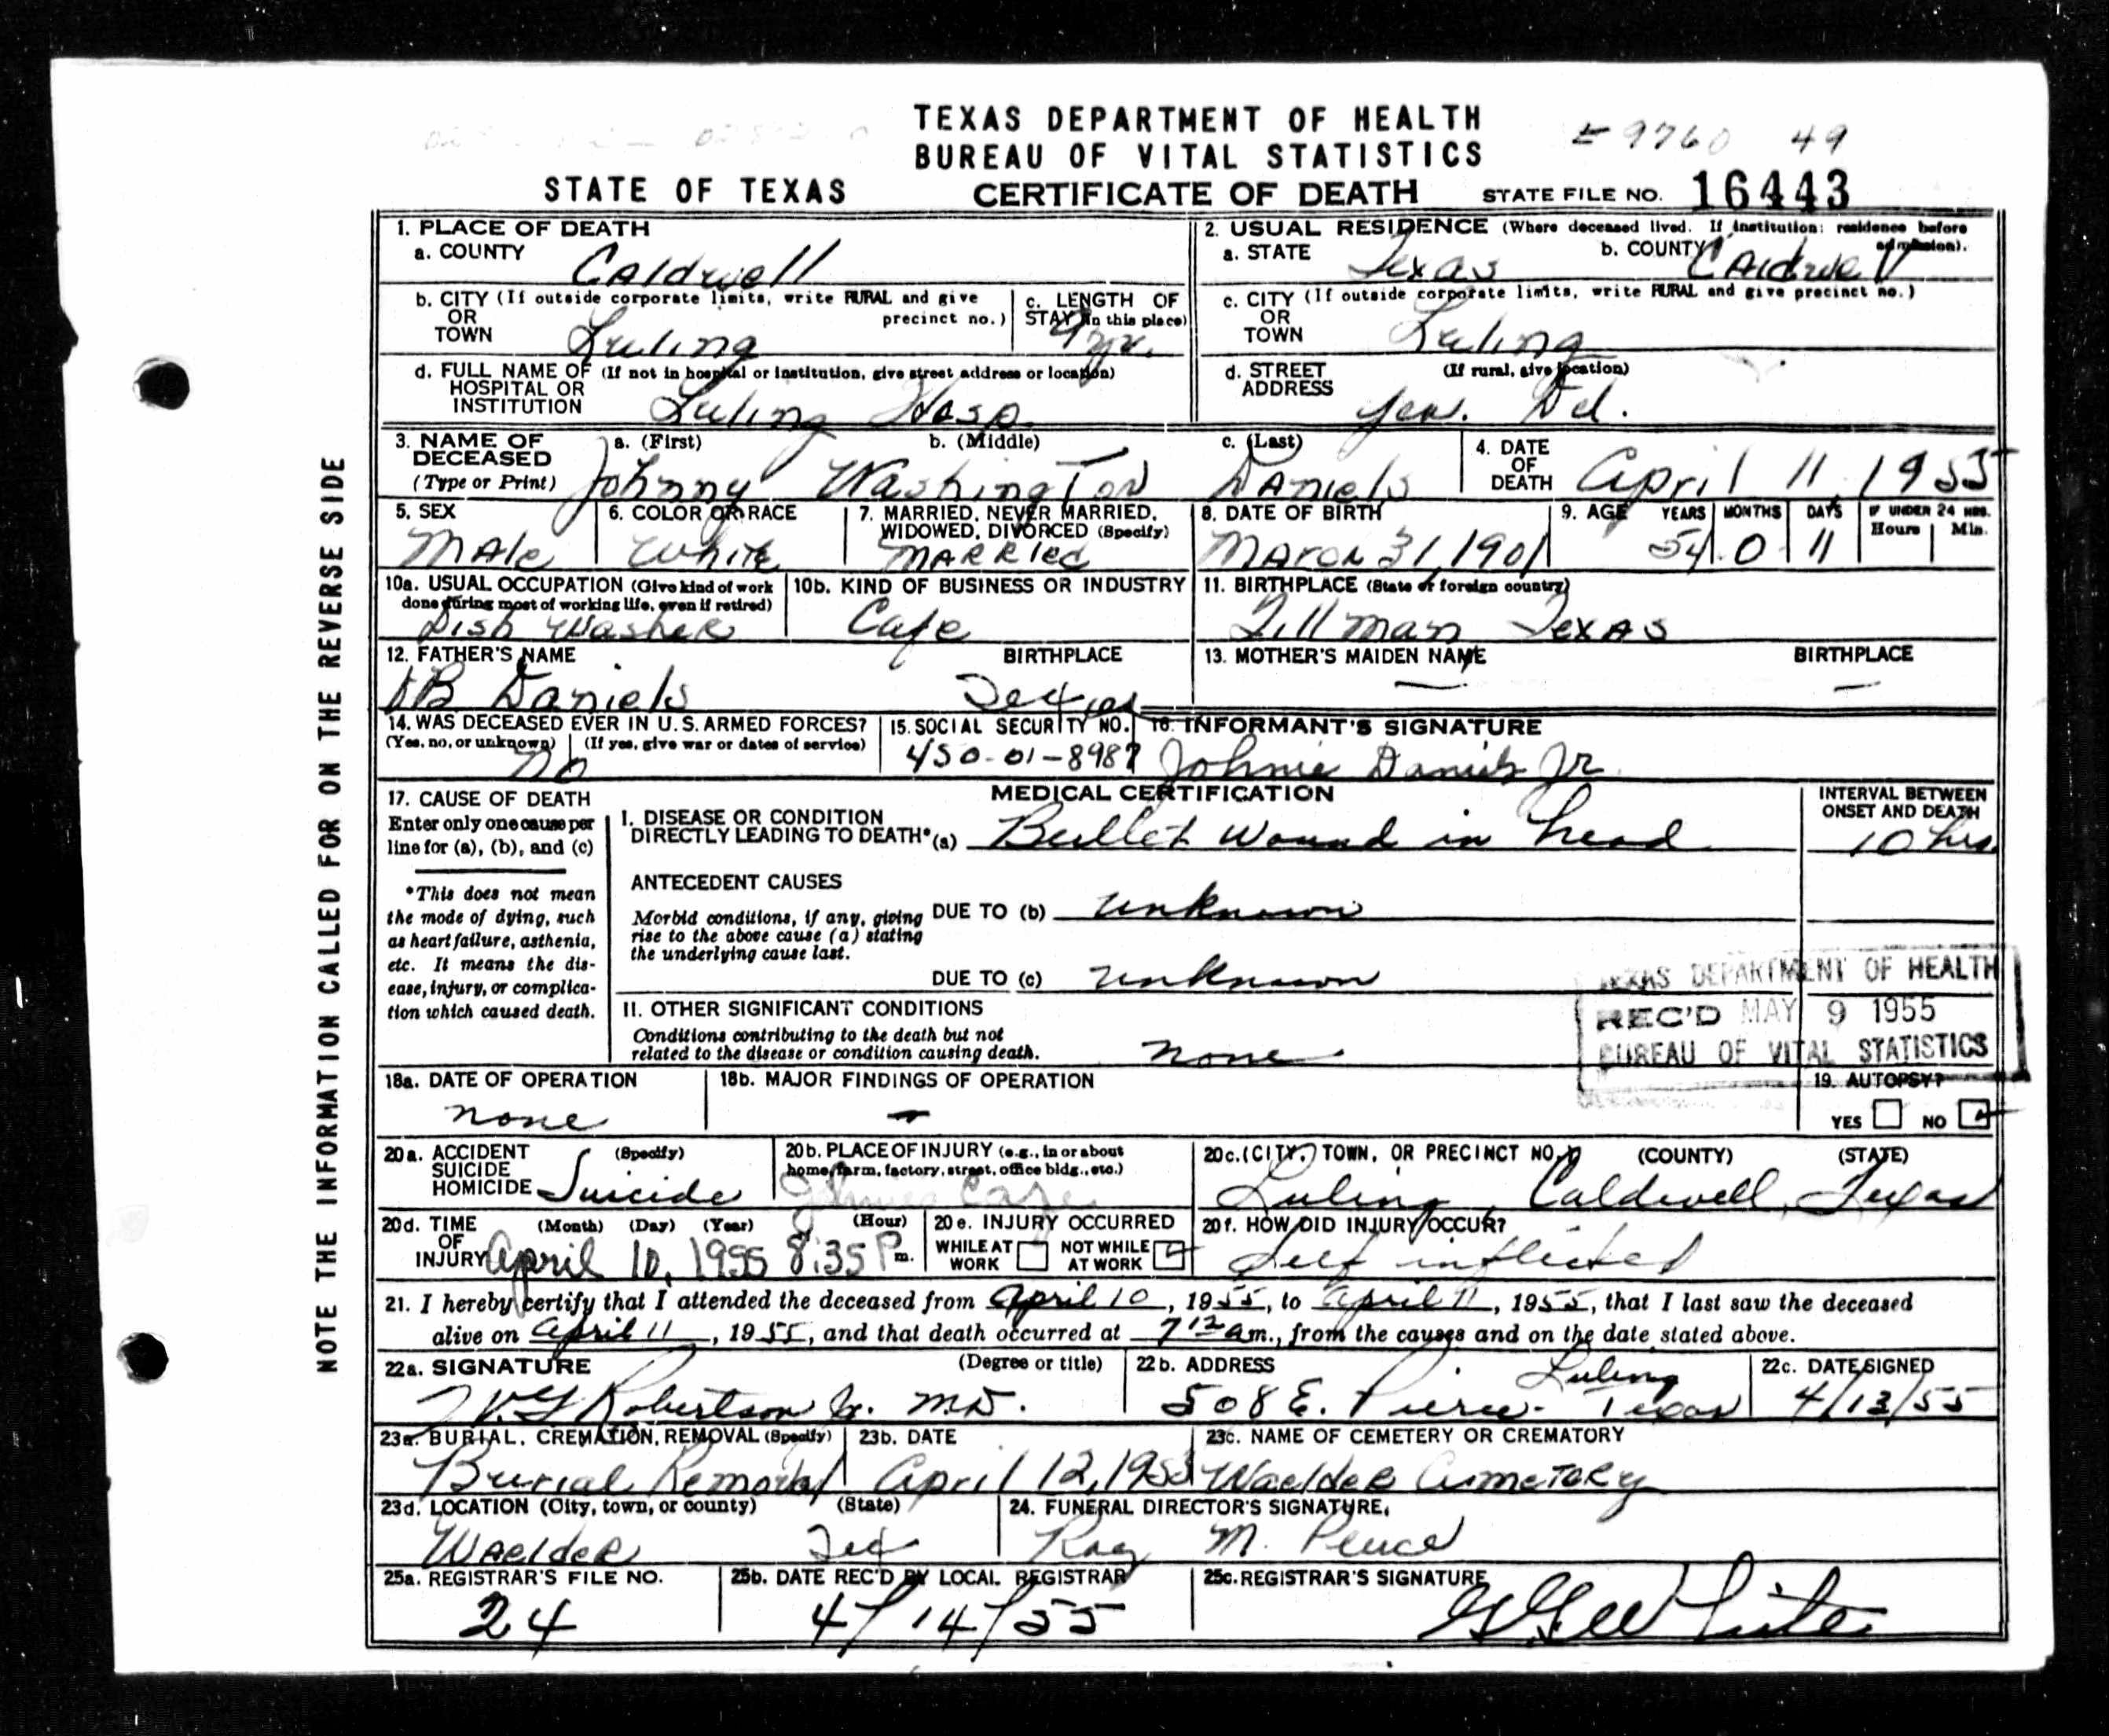 TEXAS DEPARTMENT OF HEALTH
BUREAU OF VITAL STATISTICS
9760 49
STATE OF TEXAS CERTIFICATE OF DEATH STATE FILE NO. 16443
NOTE THE INFORMATION CALLED FOR ON THE REVERSE SIDE
1. PLACE OF DEATH
a. COUNTY Caldwell
2. USUAL RESIDENCE (Where deceased lived. If institution: residence before admission).
a. STATE Texas b. COUNTY Caldwell
b. CITY (If outside corporate limits, write RURAL and give precinct no.)
OR
TOWN Luling
c. LENGTH OF
STAY (in this place)
yr.
c. CITY (If outside corporate limits, write RURAL and give precinct no.)
OR
TOWN Luling
d. FULL NAME OF (If not in hospital or institution, give street address or location)
HOSPITAL OR
INSTITUTION Luling Hosp
d. STREET (If rural, give location)
ADDRESS Gen. Del.
3. NAME OF DECEASED (Type or Print)
a. (First) Johnny b. (Middle) Washington c. (Last) Daniels
4. DATE OF DEATH April 11, 1955
5. SEX Male
6. COLOR OR RACE White
7. MARRIED, NEVER MARRIED, WIDOWED, DIVORCED (Specify) Married
8. DATE OF BIRTH March 31, 1901
9. AGE YEARS 54 MONTHS 0 DAYS 11 IF UNDER 24 HRS. Hours Min.
10a. USUAL OCCUPATION (Give kind of work done during most of working life, even if retired) Dish Washer
10b. KIND OF BUSINESS OR INDUSTRY Cafe
11. BIRTHPLACE (State or foreign country) Tillman Texas
12. FATHER'S NAME BIRTHPLACE
B Daniels Texas
13. MOTHER'S MAIDEN NAME BIRTHPLACE
— —
14. WAS DECEASED EVER IN U.S. ARMED FORCES?
(Yes, no, or unknown) (If yes, give war or dates of service)
no
15. SOCIAL SECURITY NO. 450-01-8987
16. INFORMANT'S SIGNATURE
Johnie Daniels Jr.
17. CAUSE OF DEATH
Enter only one cause per
line for (a), (b), and (c)
*This does not mean
the mode of dying, such
as heart failure, asthenia,
etc. It means the dis-
ease, injury, or complica-
tion which caused death.
MEDICAL CERTIFICATION
INTERVAL BETWEEN
ONSET AND DEATH
I. DISEASE OR CONDITION
DIRECTLY LEADING TO DEATH* (a) Bullet wound in head 10 hrs.
ANTECEDENT CAUSES
Morbid conditions, if any, giving
rise to the above cause (a) stating
the underlying cause last.
DUE TO (b) unknown
DUE TO (c) unknown
II. OTHER SIGNIFICANT CONDITIONS
Conditions contributing to the death but not
related to the disease or condition causing death. none
TEXAS DEPARTMENT OF HEALTH
REC'D MAY 9 1955
BUREAU OF VITAL STATISTICS
18a. DATE OF OPERATION none
18b. MAJOR FINDINGS OF OPERATION
-
19. AUTOPSY?
YES NO
20a. ACCIDENT
SUICIDE
HOMICIDE (Specify) Suicide
20b. PLACE OF INJURY (e.g., in or about
home, farm, factory, street, office bldg., etc.)
Cafe
20c. (CITY, TOWN, OR PRECINCT NO.) (COUNTY) (STATE)
Luling, Caldwell, Texas
20d. TIME OF INJURY (Month) (Day) (Year) (Hour)
April 10, 1955 8:35 P m.
20e. INJURY OCCURRED
WHILE AT WORK NOT WHILE AT WORK
20f. HOW DID INJURY OCCUR?
Self inflicted
21. I hereby certify that I attended the deceased from April 10, 1955, to April 11, 1955, that I last saw the deceased
alive on April 11, 1955, and that death occurred at 7 12 am., from the causes and on the date stated above.
22a. SIGNATURE (Degree or title)
Robertson Jr. M.D.
22b. ADDRESS
508 E. Pierce - Luling Texas
22c. DATE SIGNED
4/13/55
23a. BURIAL, CREMATION, REMOVAL (Specify)
Burial Removal
23b. DATE
April 12, 1955
23c. NAME OF CEMETERY OR CREMATORY
Waelder Cemetory
23d. LOCATION (City, town, or county) (State)
Waelder Tex
24. FUNERAL DIRECTOR'S SIGNATURE
Ray M.
25a. REGISTRAR'S FILE NO.
24
25b. DATE REC'D BY LOCAL REGISTRAR
4/14/55
25c. REGISTRAR'S SIGNATURE
White